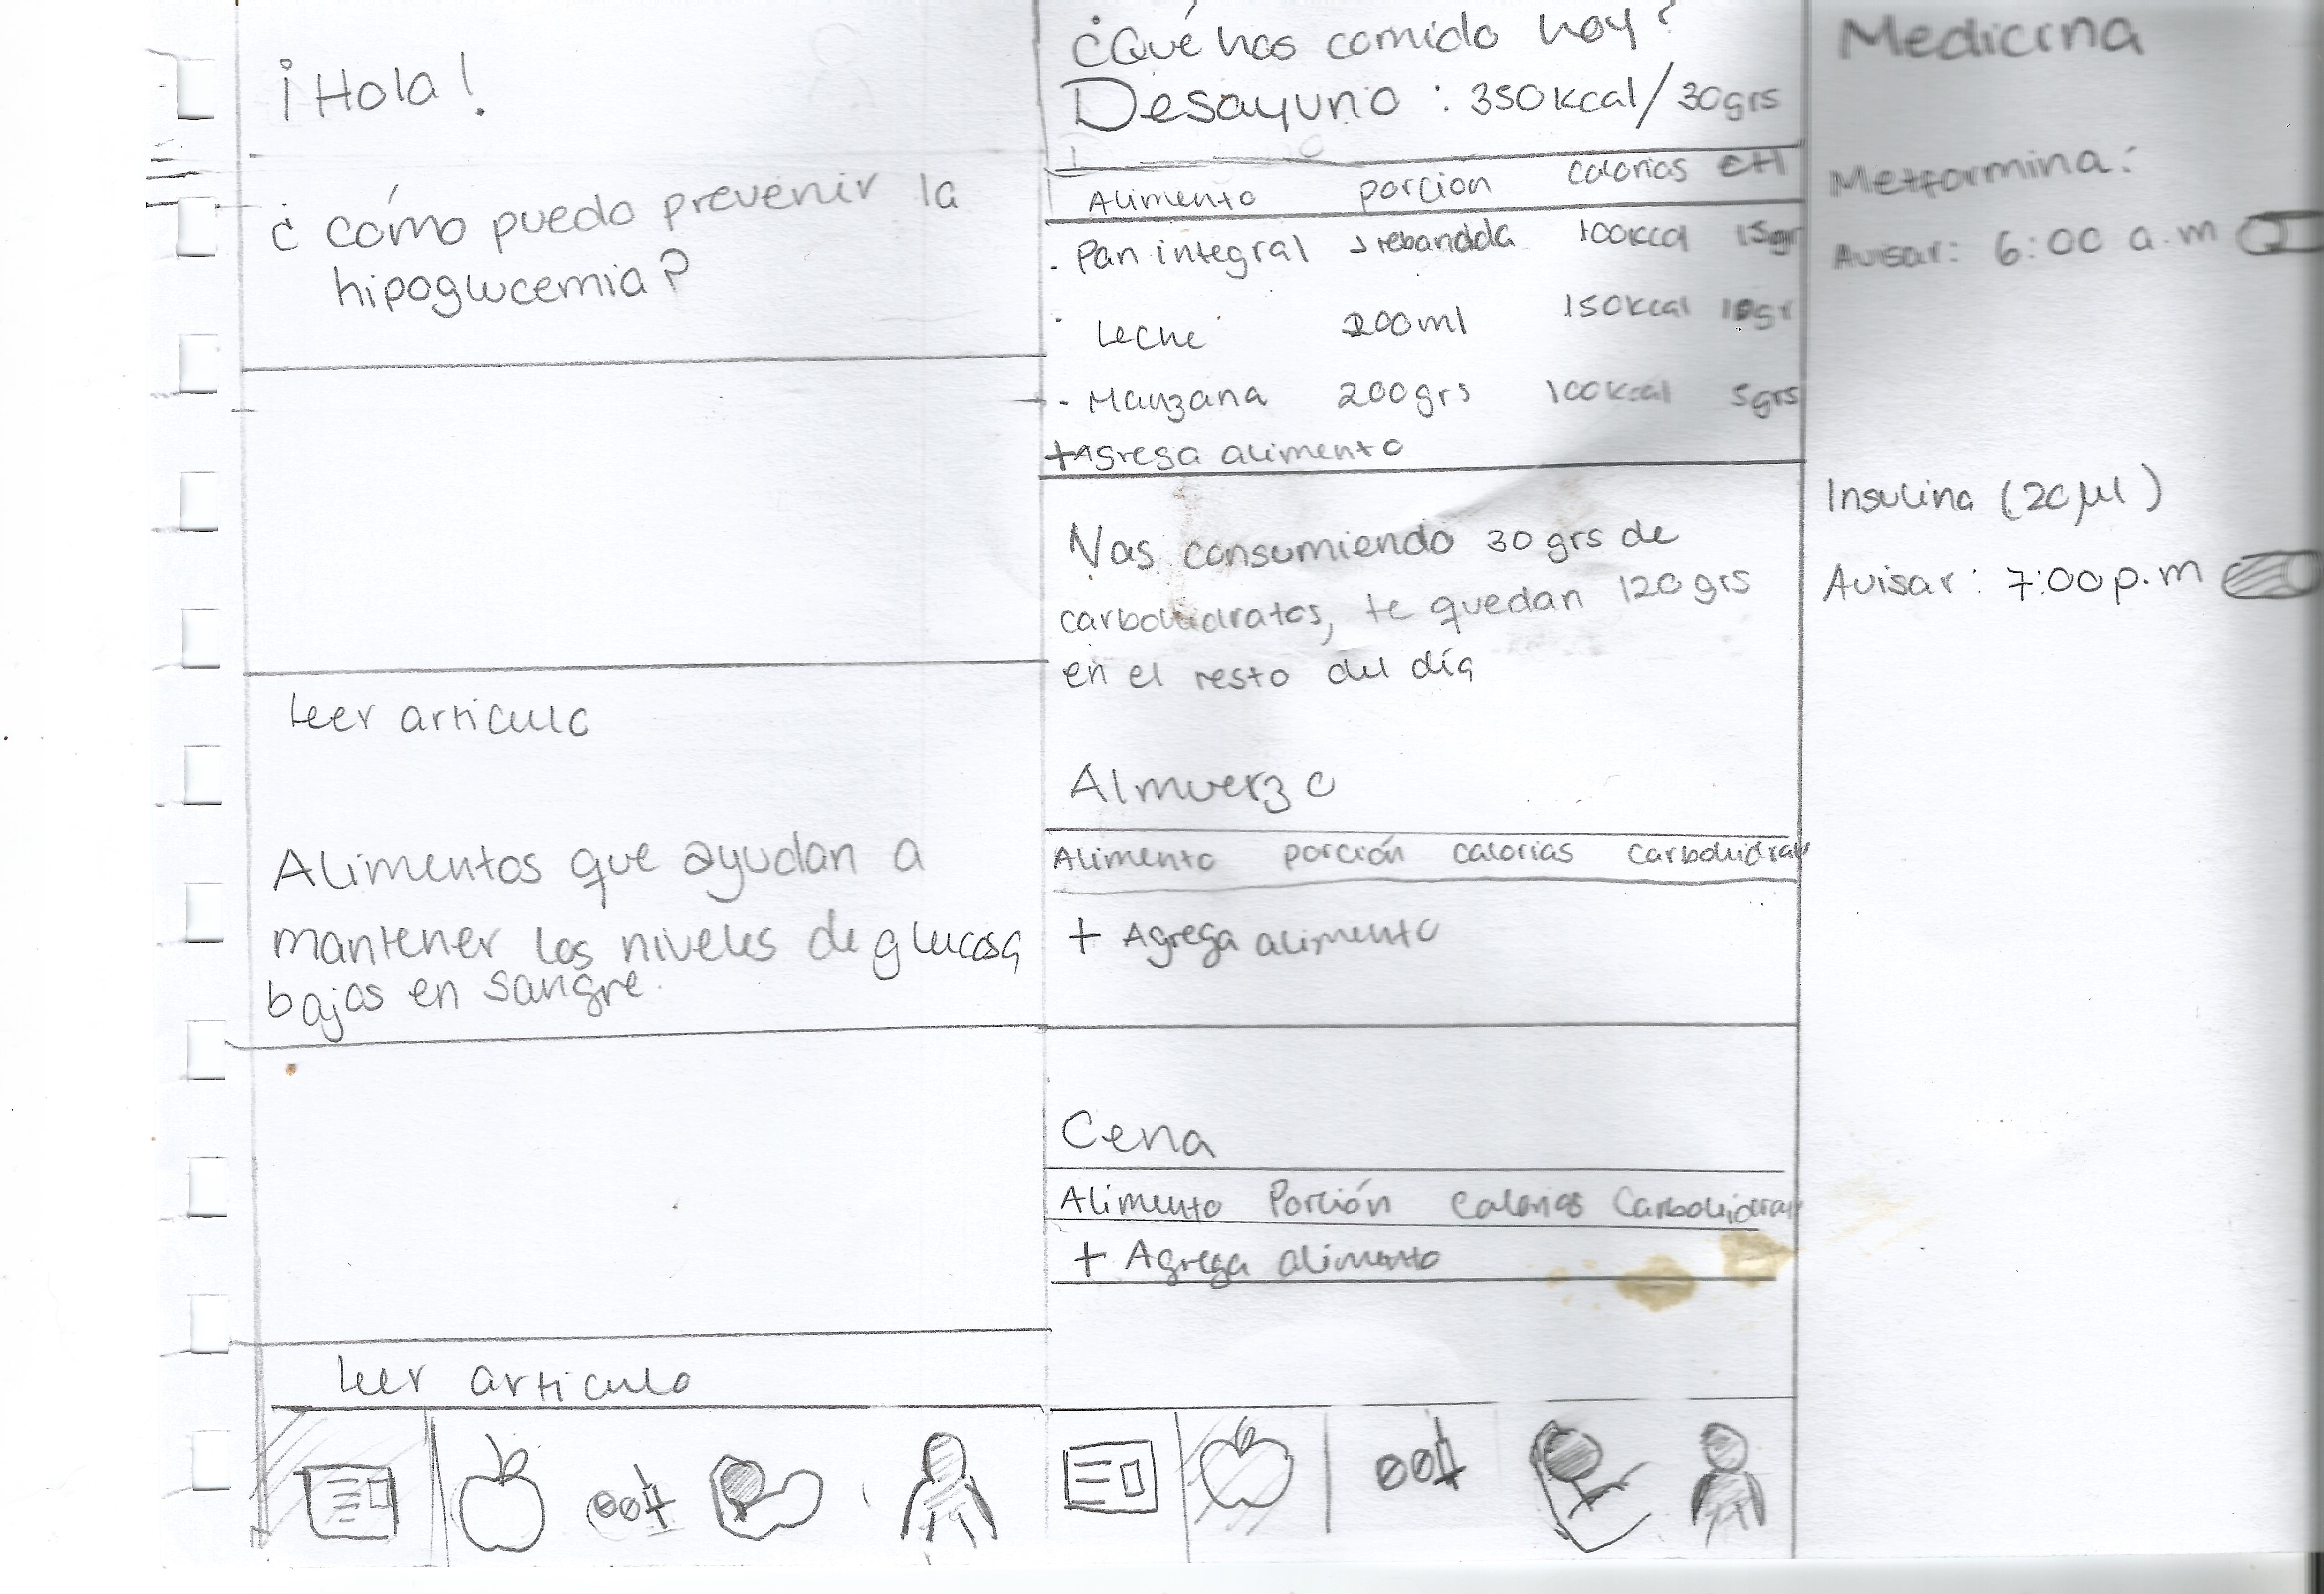 ¡Hola!
¿cómo puedo prevenir la
hipoglucemia?
Leer articulo
Alimentos que ayudan a
mantener los niveles de glucosa
bajos en sangre.
Leer articulo
¿Qué has comido hoy?
Desayuno : 350kcal/30grs
Alimento porcion calorias CH
- Pan integral 1 rebanada 100kcal 15gr
- Leche 200ml 150kcal 10gr
- Manzana 200grs 100kcal 5grs
+Agrega alimento
Vas consumiendo 30 grs de
carbohidratos, te quedan 120 grs
en el resto del día
Almuerzo
Alimento porción calorias
+ Agrega alimento
Cena
Alimento Porción Calorias
+ Agrega alimento
Medicina
Metformina:
Avisar: 6:00 a.m
Insulina (20 µl)
Avisar: 7:00 p.m